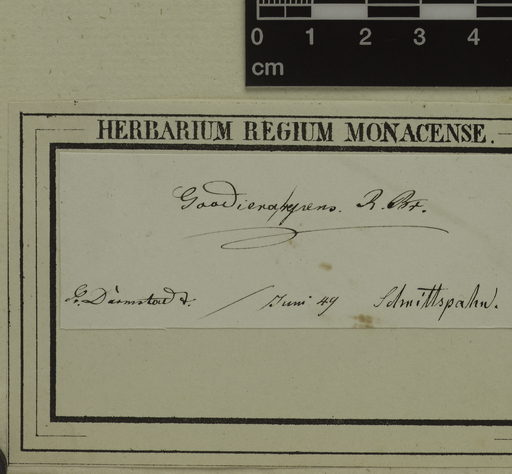 0 1 2 3 4
cm
HERBARIUM REGIUM MONACENSE.
Goodiera repens. R. Br.
Gr. Darmstadt. / Juni 49 Schnittspahn.